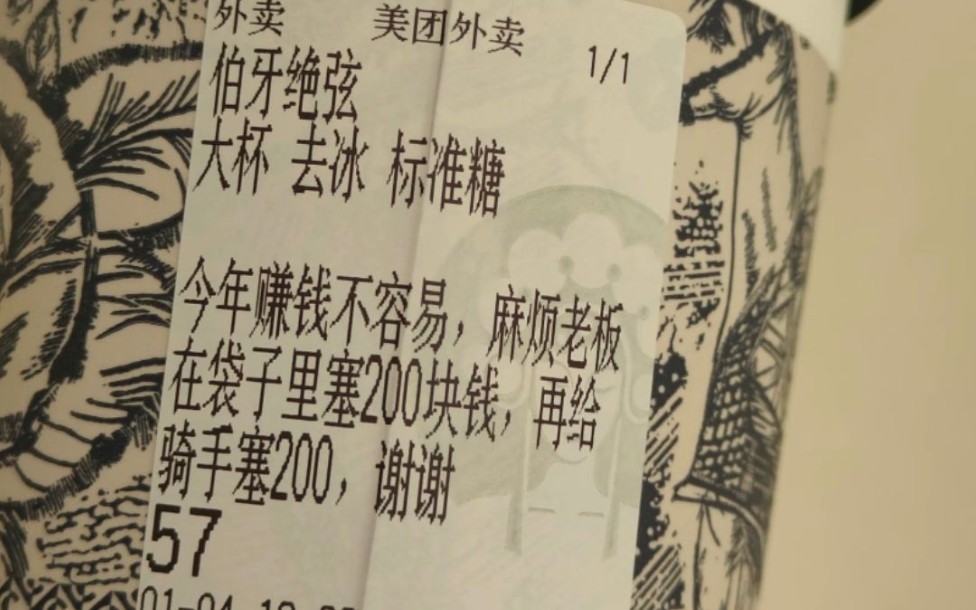 外卖 美团外卖 1/1
伯牙绝弦
大杯 去冰 标准糖
今年赚钱不容易，麻烦老板
在袋子里塞200块钱，再给
骑手塞200，谢谢
57
01-04